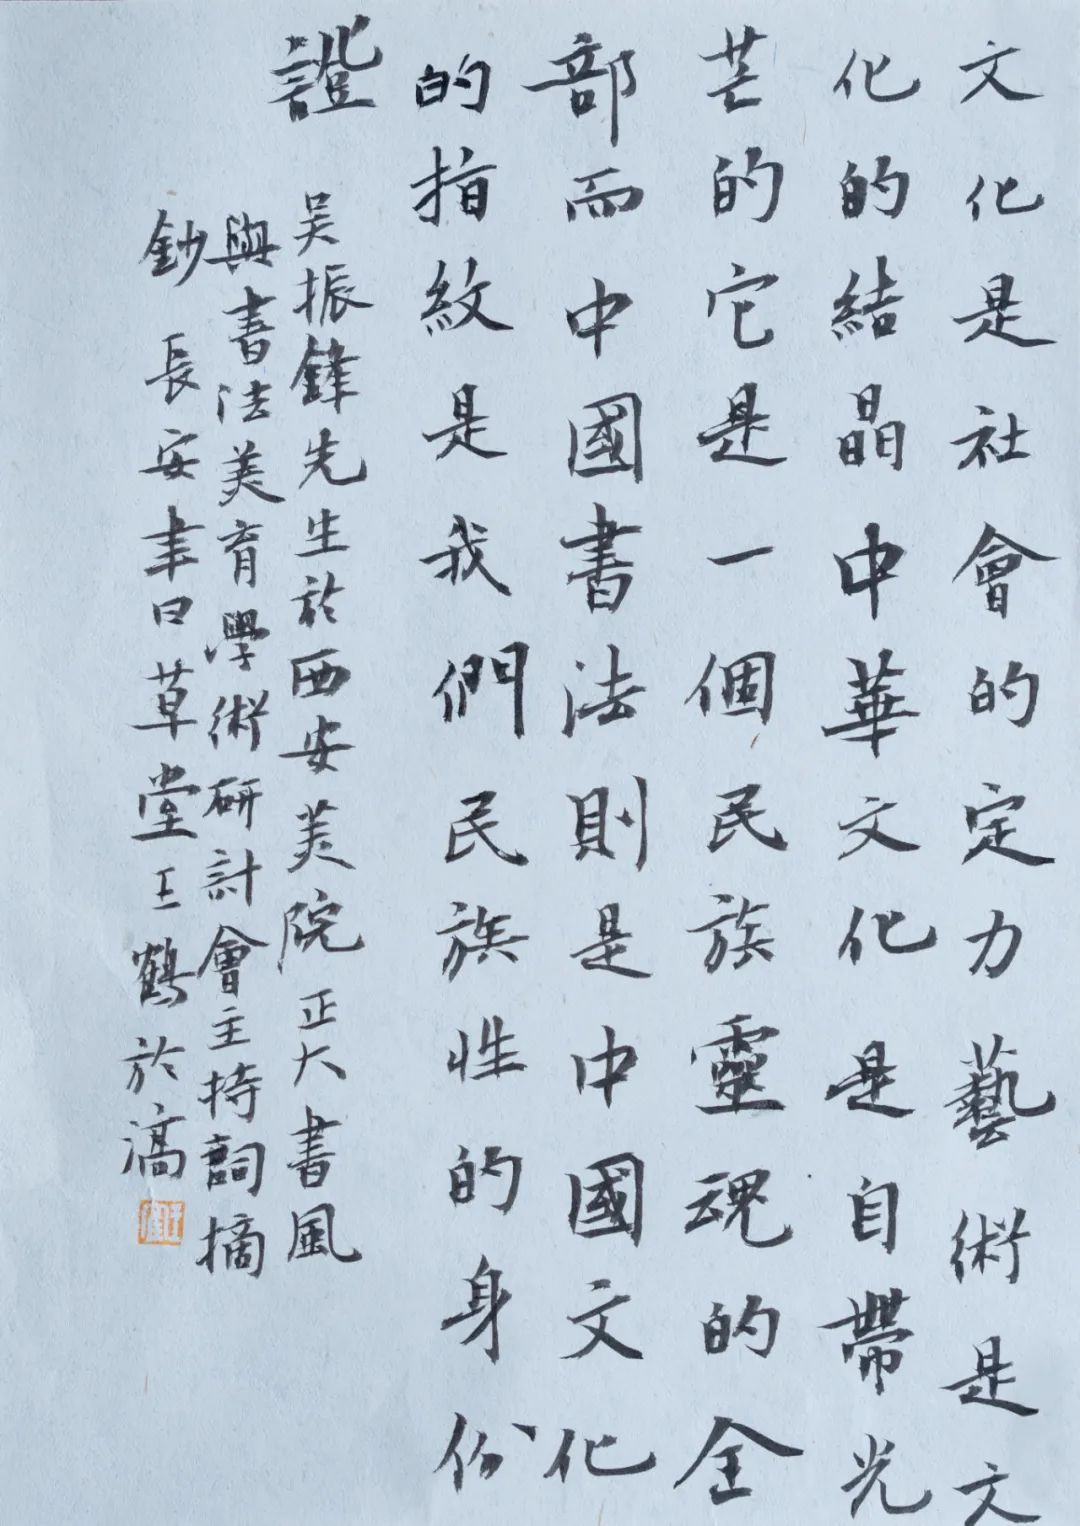 文化是社會的定力藝術是文
化的結晶中華文化是自帶光
芒的它是一個民族靈魂的全
部而中國書法則是中國文化
的指紋是我們民族性的身份
證
吳振鋒先生於西安美院正大書風
與書法美育學術研討會主持詞摘
鈔 長安聿日草堂王鶴於滈